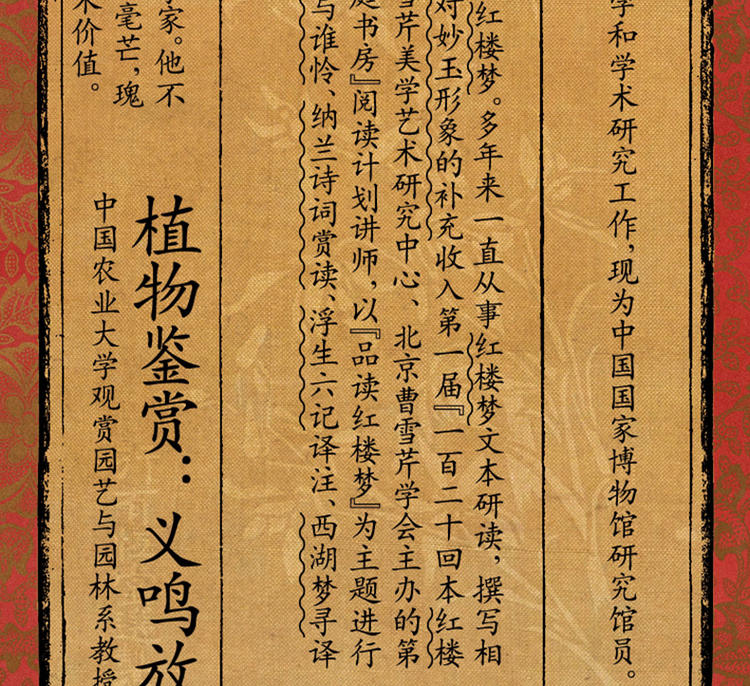 学和学术研究工作，现为中国国家博物馆研究馆员。
红楼梦。多年来一直从事红楼梦文本研读，撰写相
对妙玉形象的补充收入第一届『一百二十回本红楼
雪芹美学艺术研究中心、北京曹雪芹学会主办的第
庭书房』阅读计划讲师，以『品读红楼梦』为主题进行
写谁怜、纳兰诗词赏读、浮生六记译注、西湖梦寻译
植物鉴赏：义鸣放
中国农业大学观赏园艺与园林系教授
家。他不
毫芒，瑰
术价值。